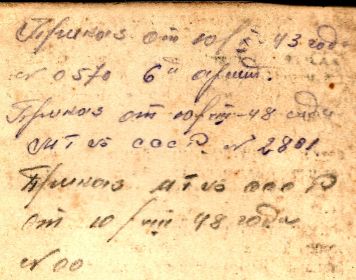 Приказ от 10/ 43 года
№ 0570 6й армии.
Приказ от 10/III-48 года
МГБ СССР. № 2801
Приказ МГБ СССР
от 10/III 48 года
№ 00